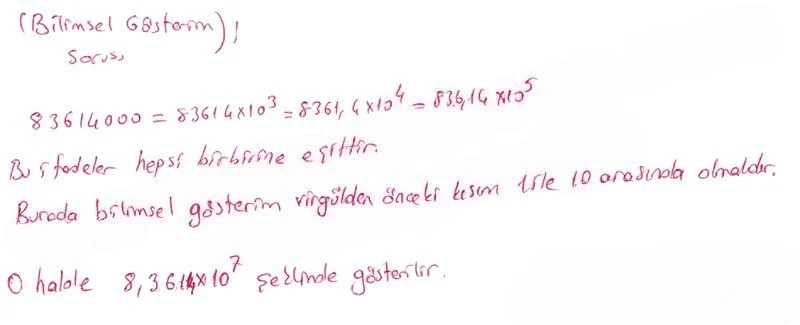 (Bilimsel Gösterim);
Sorusu
83614000 = 83614x10³ = 8361,4x10⁴ = 836,14x10⁵
Bu ifadeler hepsi birbirine eşittir.
Burada bilimsel gösterim virgülden önceki kısım 1 ile 10 arasında olmalıdır.
O halde 8,3614x10⁷ şeklinde gösterilir.